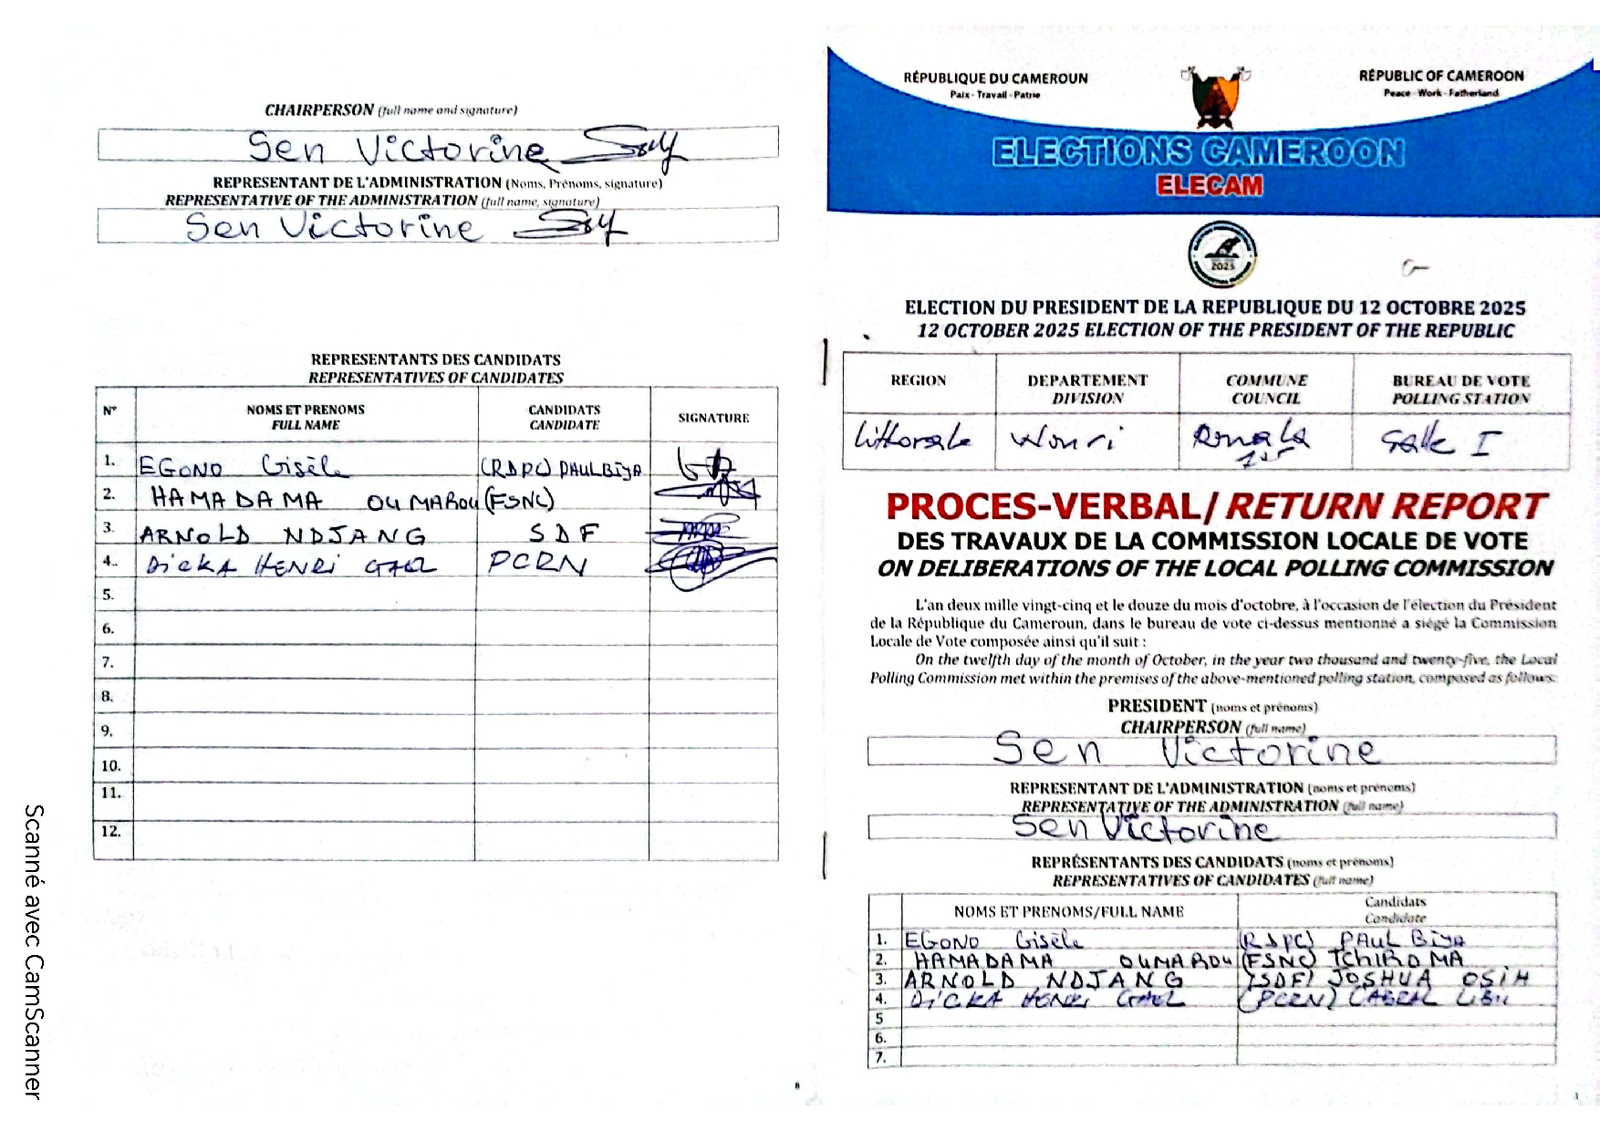 CHAIRPERSON (full name and signature)
Sen Victorine
REPRESENTANT DE L'ADMINISTRATION (Noms, Prénoms, signature)
REPRESENTATIVE OF THE ADMINISTRATION (full name, signature)
Sen Victorine
REPRESENTANTS DES CANDIDATS
REPRESENTATIVES OF CANDIDATES
N° NOMS ET PRENOMS FULL NAME CANDIDATS CANDIDATE SIGNATURE
1. EGONO Gisèle (RDPC) PAUL BIYA
2. HAMADAMA OUMAROU (FSNC)
3. ARNOLD NDJANG SDF
4. DICKA HENRI GAEL PCRN
5.
6.
7.
8.
9.
10.
11.
12.
8
Scanné avec CamScanner
RÉPUBLIQUE DU CAMEROUN
Paix - Travail - Patrie
RÉPUBLIC OF CAMEROON
Peace - Work - Fatherland
ELECTIONS CAMEROON
ELECAM
2025
ELECTION DU PRESIDENT DE LA REPUBLIQUE DU 12 OCTOBRE 2025
12 OCTOBER 2025 ELECTION OF THE PRESIDENT OF THE REPUBLIC
REGION DEPARTEMENT DIVISION COMMUNE COUNCIL BUREAU DE VOTE POLLING STATION
Littorale Wouri Douala 1er Salle I
PROCES-VERBAL/ RETURN REPORT
DES TRAVAUX DE LA COMMISSION LOCALE DE VOTE
ON DELIBERATIONS OF THE LOCAL POLLING COMMISSION
L'an deux mille vingt-cinq et le douze du mois d'octobre, à l'occasion de l'élection du Président
de la République du Cameroun, dans le bureau de vote ci-dessus mentionné a siégé la Commission
Locale de Vote composée ainsi qu'il suit :
On the twelfth day of the month of October, in the year two thousand and twenty-five, the Local
Polling Commission met within the premises of the above-mentioned polling station, composed as follows:
PRESIDENT (noms et prénoms)
CHAIRPERSON (full name)
Sen Victorine
REPRESENTANT DE L'ADMINISTRATION (noms et prénoms)
REPRESENTATIVE OF THE ADMINISTRATION (full name)
Sen Victorine
REPRÉSENTANTS DES CANDIDATS (noms et prénoms)
REPRESENTATIVES OF CANDIDATES (full name)
NOMS ET PRENOMS/FULL NAME Candidats Candidate
1. EGONO Gisèle (RDPC) PAUL BIYA
2. HAMADAMA OUMAROU (FSNC) TCHIROMA
3. ARNOLD NDJANG (SDF) JOSHUA OSIH
4. DICKA HENRI GAEL (PCRN) CABRAL LIBII
5
6.
7.
1